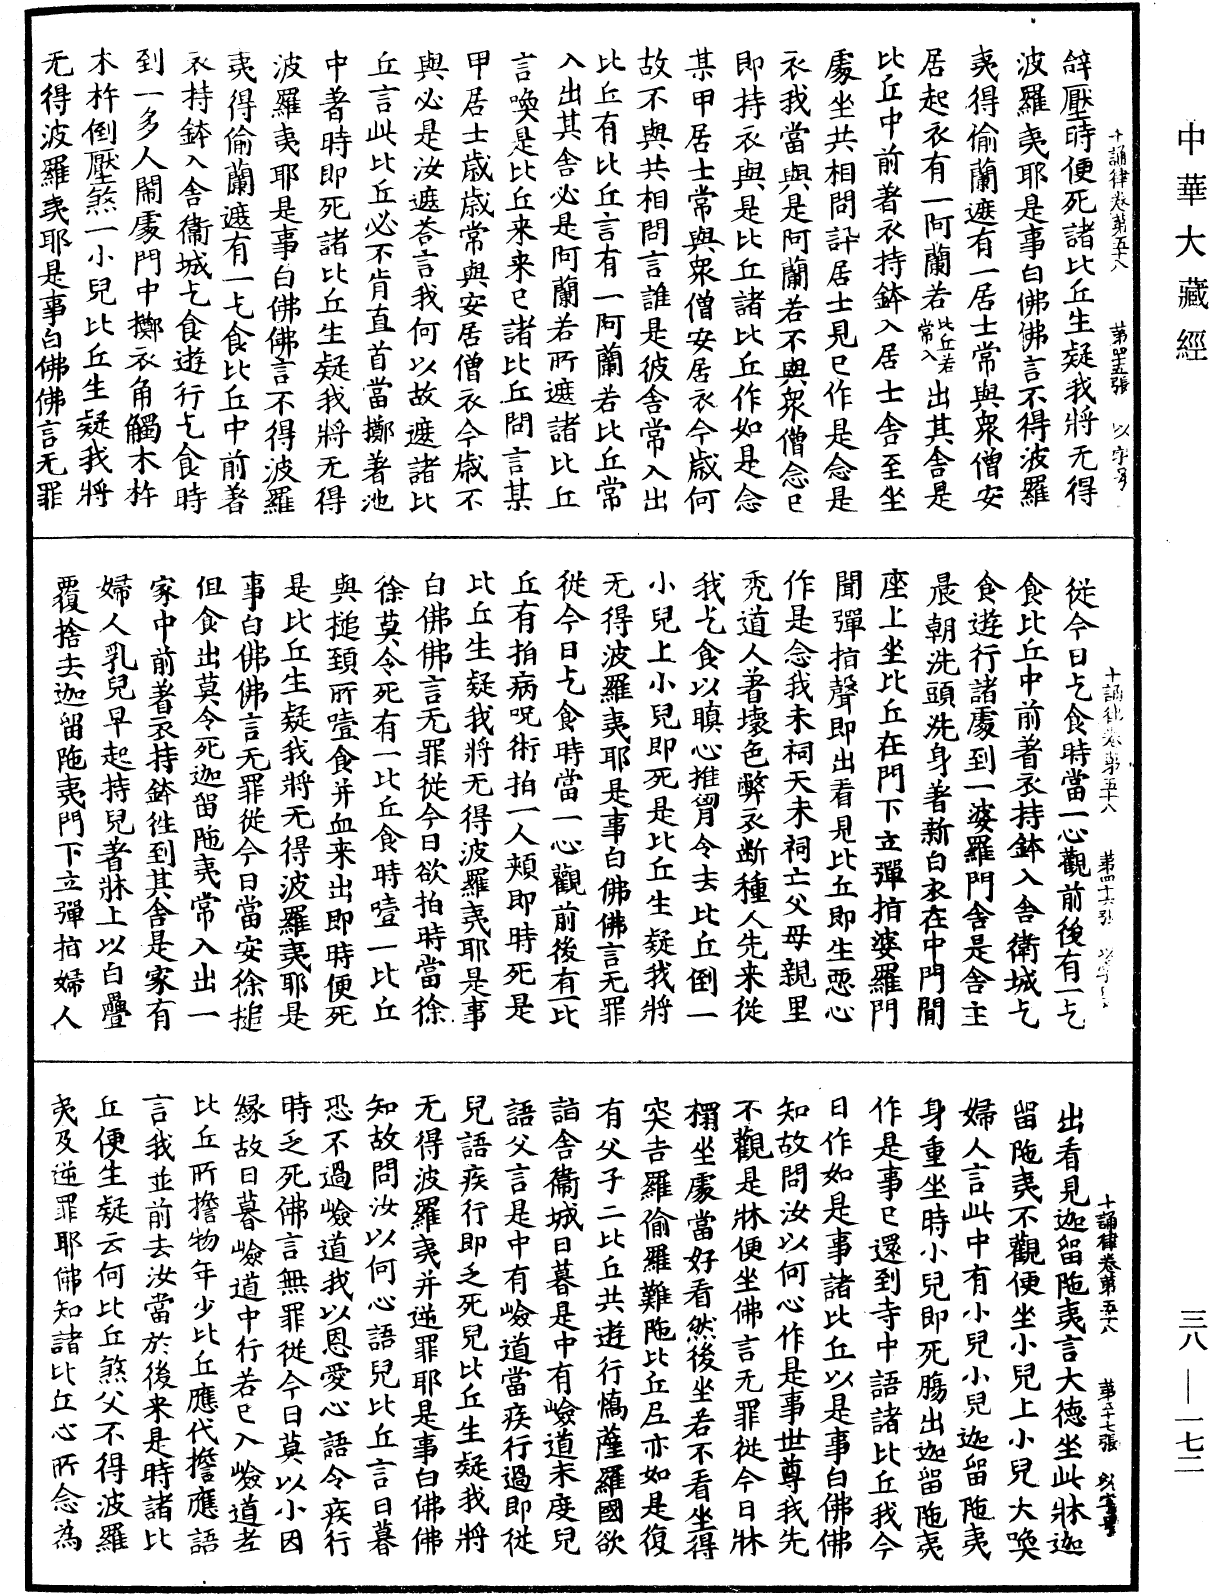 中華大藏經
十誦律卷第五十八　第四十五張　以字号
辝壓時便死諸比丘生疑我將无得
波羅夷耶是事白佛佛言不得波羅
夷得偷蘭遮有一居士常與衆僧安
居起衣有一阿蘭若比丘若常入出其舍是
比丘中前著衣持鉢入居士舍至坐
處坐共相問訊居士見已作是念是
衣我當與是阿蘭若不與衆僧念已
即持衣與是比丘諸比丘作如是念
某甲居士常與衆僧安居衣今歲何
故不與共相問言誰是彼舍常入出
比丘有比丘言有一阿蘭若比丘常
入出其舍必是阿蘭若所遮諸比丘
言喚是比丘来来已諸比丘問言某
甲居士歲歲常與安居僧衣今歲不
與必是汝遮荅言我何以故遮諸比
丘言此比丘必不肯直首當擲著池
中著時即死諸比丘生疑我將无得
波羅夷耶是事白佛佛言不得波羅
夷得偷蘭遮有一乞食比丘中前著
衣持鉢入舍衞城乞食遊行乞食時
到一多人鬧處門中擲衣角觸木杵
木杵倒壓煞一小兒比丘生疑我將
无得波羅夷耶是事白佛佛言无罪
十誦律卷第五十八　第四十六張
從今日乞食時當一心觀前後有一乞
食比丘中前著衣持鉢入舍衛城乞
食遊行諸處到一婆羅門舍是舍主
晨朝洗頭洗身著新白衣在中門間
座上坐比丘在門下立彈指婆羅門
聞彈指聲即出看見比丘即生惡心
作是念我未祠天未祠亡父母親里
禿道人著壞色弊衣断種人先来從
我乞食以瞋心推𦚾令去比丘倒一
小兒上小兒即死是比丘生疑我將
无得波羅夷耶是事白佛佛言无罪
從今日乞食時當一心觀前後有一比
丘有拍病呪術拍一人頰即時死是
比丘生疑我將无得波羅夷耶是事
白佛佛言无罪從今日欲拍時當徐
徐莫令死有一比丘食時噎一比丘
與搥頚所噎食并血来出即時便死
是比丘生疑我將无得波羅夷耶是
事白佛佛言无罪從今日當安徐搥
但食出莫令死迦留陁夷常入出一
家中前著衣持鉢徃到其舍是家有
婦人乳兒早起持兒著牀上以白疊
覆捨去迦留陁夷門下立彈指婦人
十誦律卷第五十八　第四十七張　以字号
出看見迦留陁夷言大德坐此牀迦
留陁夷不觀便坐小兒上小兒大喚
婦人言此中有小兒小兒迦留陁夷
身重坐時小兒即死膓出迦留陁夷
作是事已還到寺中語諸比丘我今
日作如是事諸比丘以是事白佛佛
知故問汝以何心作是事世尊我先
不觀是牀便坐佛言无罪從今日牀
榻坐處當好看然後坐若不看坐得
突吉羅偷羅難陁比丘𡰱亦如是復
有父子二比丘共遊行憍薩羅國欲
詣舍衞城日暮是中有嶮道未度兒
語父言是中有嶮道當疾行過即從
兒語疾行即乏死兒比丘生疑我將
无得波羅夷并逆罪耶是事白佛佛
知故問汝以何心語兒比丘言日暮
恐不過嶮道我以恩愛心語令疾行
時乏死佛言無罪從今日莫以小因
緣故日暮嶮道中行若已入嶮道老
比丘所擔物年少比丘應代擔應語
言我並前去汝當於後来是時諸比
丘便生疑云何比丘煞父不得波羅
夷及逆罪耶佛知諸比丘心所念為
三八—一七二